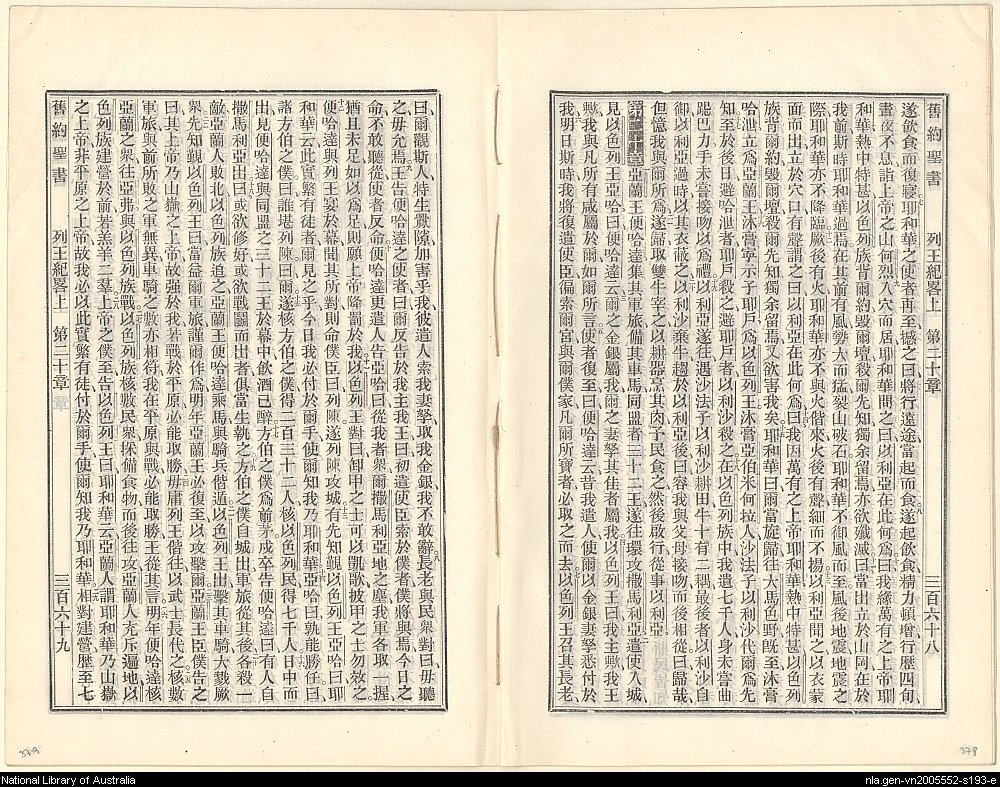 舊約聖書　列王紀畧上　第二十章　三百六十八
遂飲食而復寢耶和華之使者再至撼之曰將行遠途當起而食遂起飲食食精力頓增行歷四旬
晝夜不息詣上帝之山何烈入穴而居耶和華問之曰以利亞在此何爲曰我緣萬有之上帝耶
和華熱中特甚以色列族背爾約毀爾壇殺爾先知獨余留焉亦欲殲滅曰當出立於山岡在於
我前斯時耶和華過焉在其前有風勢大而猛裂山破石耶和華不御風而至風後地震地震之
際耶和華亦不降臨厥後有火耶和華亦不與火偕來火後有聲細而不揚以利亞聞之以衣蒙
面而出立於穴口有聲謂之曰以利亞在此何爲曰我因萬有之上帝耶和華熱中特甚以色列
族背爾約毀爾壇殺爾先知獨余留焉又欲害我矣耶和華曰爾當旋歸往大馬色野旣至沐膏
哈泄立爲亞蘭王沐膏寧示子耶戶爲以色列王沐膏亞伯米何拉人沙法子以利沙代爾爲先
知至於後日避哈泄者耶戶殺之避耶戶者以利沙殺之在以色列族中我遺七千人身未嘗曲
跽巴力手未嘗接吻以爲禮以利亞遂往遇沙法子以利沙耕田牛十有二耦最後者以利沙自
御以利亞過時以其衣蔽之以利沙棄牛趨於以利亞後曰容我與父母接吻而後相從曰歸哉
但憶我與爾所爲遂歸取雙牛宰之以耕器烹其肉予民食之然後啟行從事以利亞
第二十章 亞蘭王便哈達集其軍旅備其車馬同盟者三十二王遂往環攻撒馬利亞遣使入城
見以色列王亞哈曰便哈達云爾之金銀屬我爾之妻孥其佳者屬我以色列王曰我主我王
歟我與凡所有咸屬於爾如爾所言使者復至曰便哈達云昔我遣人使爾以金銀妻孥悉付於
我明日斯時我將復遣使臣徧索爾宮與爾僕家凡爾所寶者必取之而去以色列王召其長老
曰爾觀斯人特生釁隙加害乎我彼遣人索我妻孥取我金銀我不敢辭長老與民衆對曰毋聽
之毋允焉王告便哈達之使者曰爾反告於我主我王曰初遣使臣索於僕者僕將與焉今日之
命不敢聽從使者反命便哈達更遣人告亞哈曰從我者衆爾撒馬利亞地之塵我軍各取一握
猶且未足如以爲足則願上帝降罰於我以色列王對曰卸甲之士可以凱歌披甲之士勿效之
便哈達與列王宴於幕聞其所對命僕臣曰列陳遂列陳攻城有先知覲以色列王亞哈曰耶
和華云此實繁有徒者爾見之乎今日我必付於爾手使爾知我乃耶和華亞哈曰孰能勝任曰
諸方伯之僕曰誰堪列陳曰爾遂核方伯之僕得二百三十二人核以色列民得七千人日中而
出見便哈達與同盟之三十二王於幕中飲酒已醉方伯之僕爲前茅戍卒告便哈達曰有人自
撒馬利亞出曰或欲修好或欲戰鬭而出者俱當生執之方伯之僕自城出軍旅從其後各殺一
敵亞蘭人敗北以色列族追之亞蘭王便哈達乘馬與騎兵偕遁以色列王出擊其車騎大戮厥
衆先知覲以色列王曰當益爾軍旅謹爾作爲明年亞蘭王必復至以攻擊爾亞蘭王臣僕告之
曰其上帝乃山嶽之上帝故强於我若戰於平原必能取勝毋庸列王偕往以武士長代之核數
軍旅與前所敗之軍無異車騎之數亦相符我在平原與戰必能取勝王從其言明年便哈達核
亞蘭之衆往亞弗與以色列族戰以色列族核數民衆採備食物而後往攻亞蘭人充斥遍地以
色列族建營於前若羔羊二羣上帝之僕至告以色列王曰耶和華云亞蘭人謂耶和華乃山嶽
之上帝非平原之上帝故我必以此實繁有徒付於爾手使爾知我乃耶和華相對建營歷至七
舊約聖書　列王紀畧上　第二十章　三百六十九
379
378
National Library of Australia
nla.gen-vn2005552-s193-e